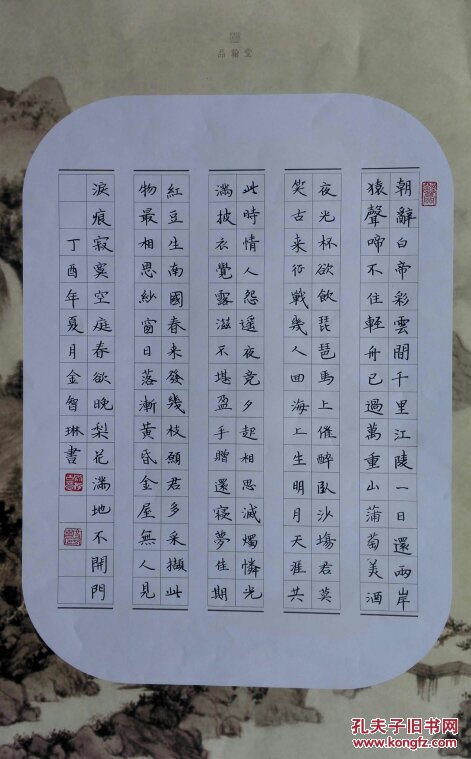 品翰堂
朝辭白帝彩雲間千里江陵一日還兩岸
猿聲啼不住輕舟已過萬重山蒲萄美酒
夜光杯欲飲琵琶馬上催醉臥沙場君莫
笑古来征戰幾人回海上生明月天涯共
此時情人怨遥夜竞夕起相思滅燭憐光
滿披衣覺露滋不堪盈手贈還寢夢佳期
紅豆生南國春来發幾枝願君多采擷此
物最相思紗窗日落漸黄昏金屋無人見
淚痕寂寞空庭春欲晚梨花滿地不開門
丁酉年夏月金智琳書
孔夫子旧书网
www.kongfz.com